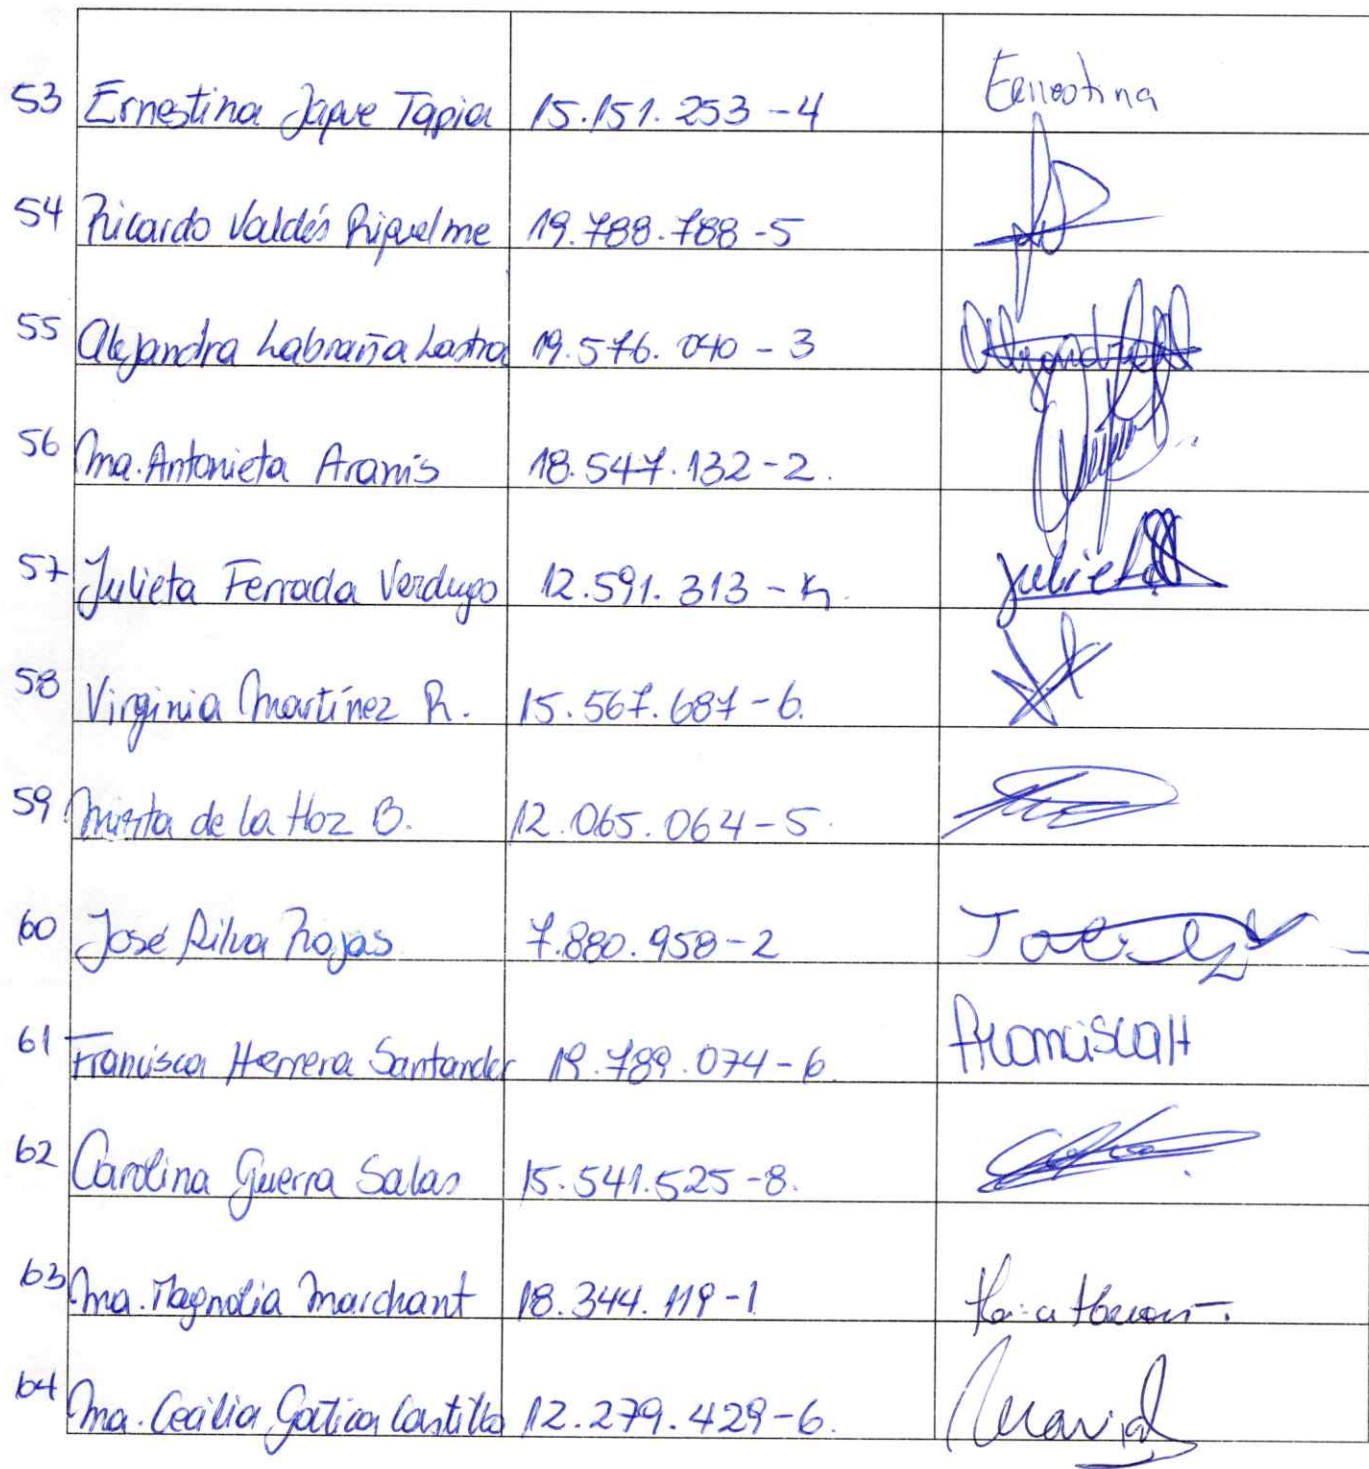 53 Ernestina Jaque Tapia 15.151.253-4 Ernestina
54 Ricardo Valdés Riquelme 19.788.788-5
55 Alejandra Labraña Lastra 19.576.040-3
56 Ma. Antonieta Aranís 18.547.132-2.
57 Julieta Ferrada Verdugo 12.591.313-K. Julieta
58 Virginia Martínez R. 15.567.687-6.
59 Mirta de la Hoz B. 12.065.064-5.
60 José Silva Rojas 7.880.958-2
61 Francisca Herrera Santander 19.789.074-6 Francisca H
62 Carolina Guerra Salas 15.541.525-8.
63 Ma. Magnolia Marchant 18.344.119-1
64 Ma. Cecilia Gatica Castillo 12.279.429-6. Maria